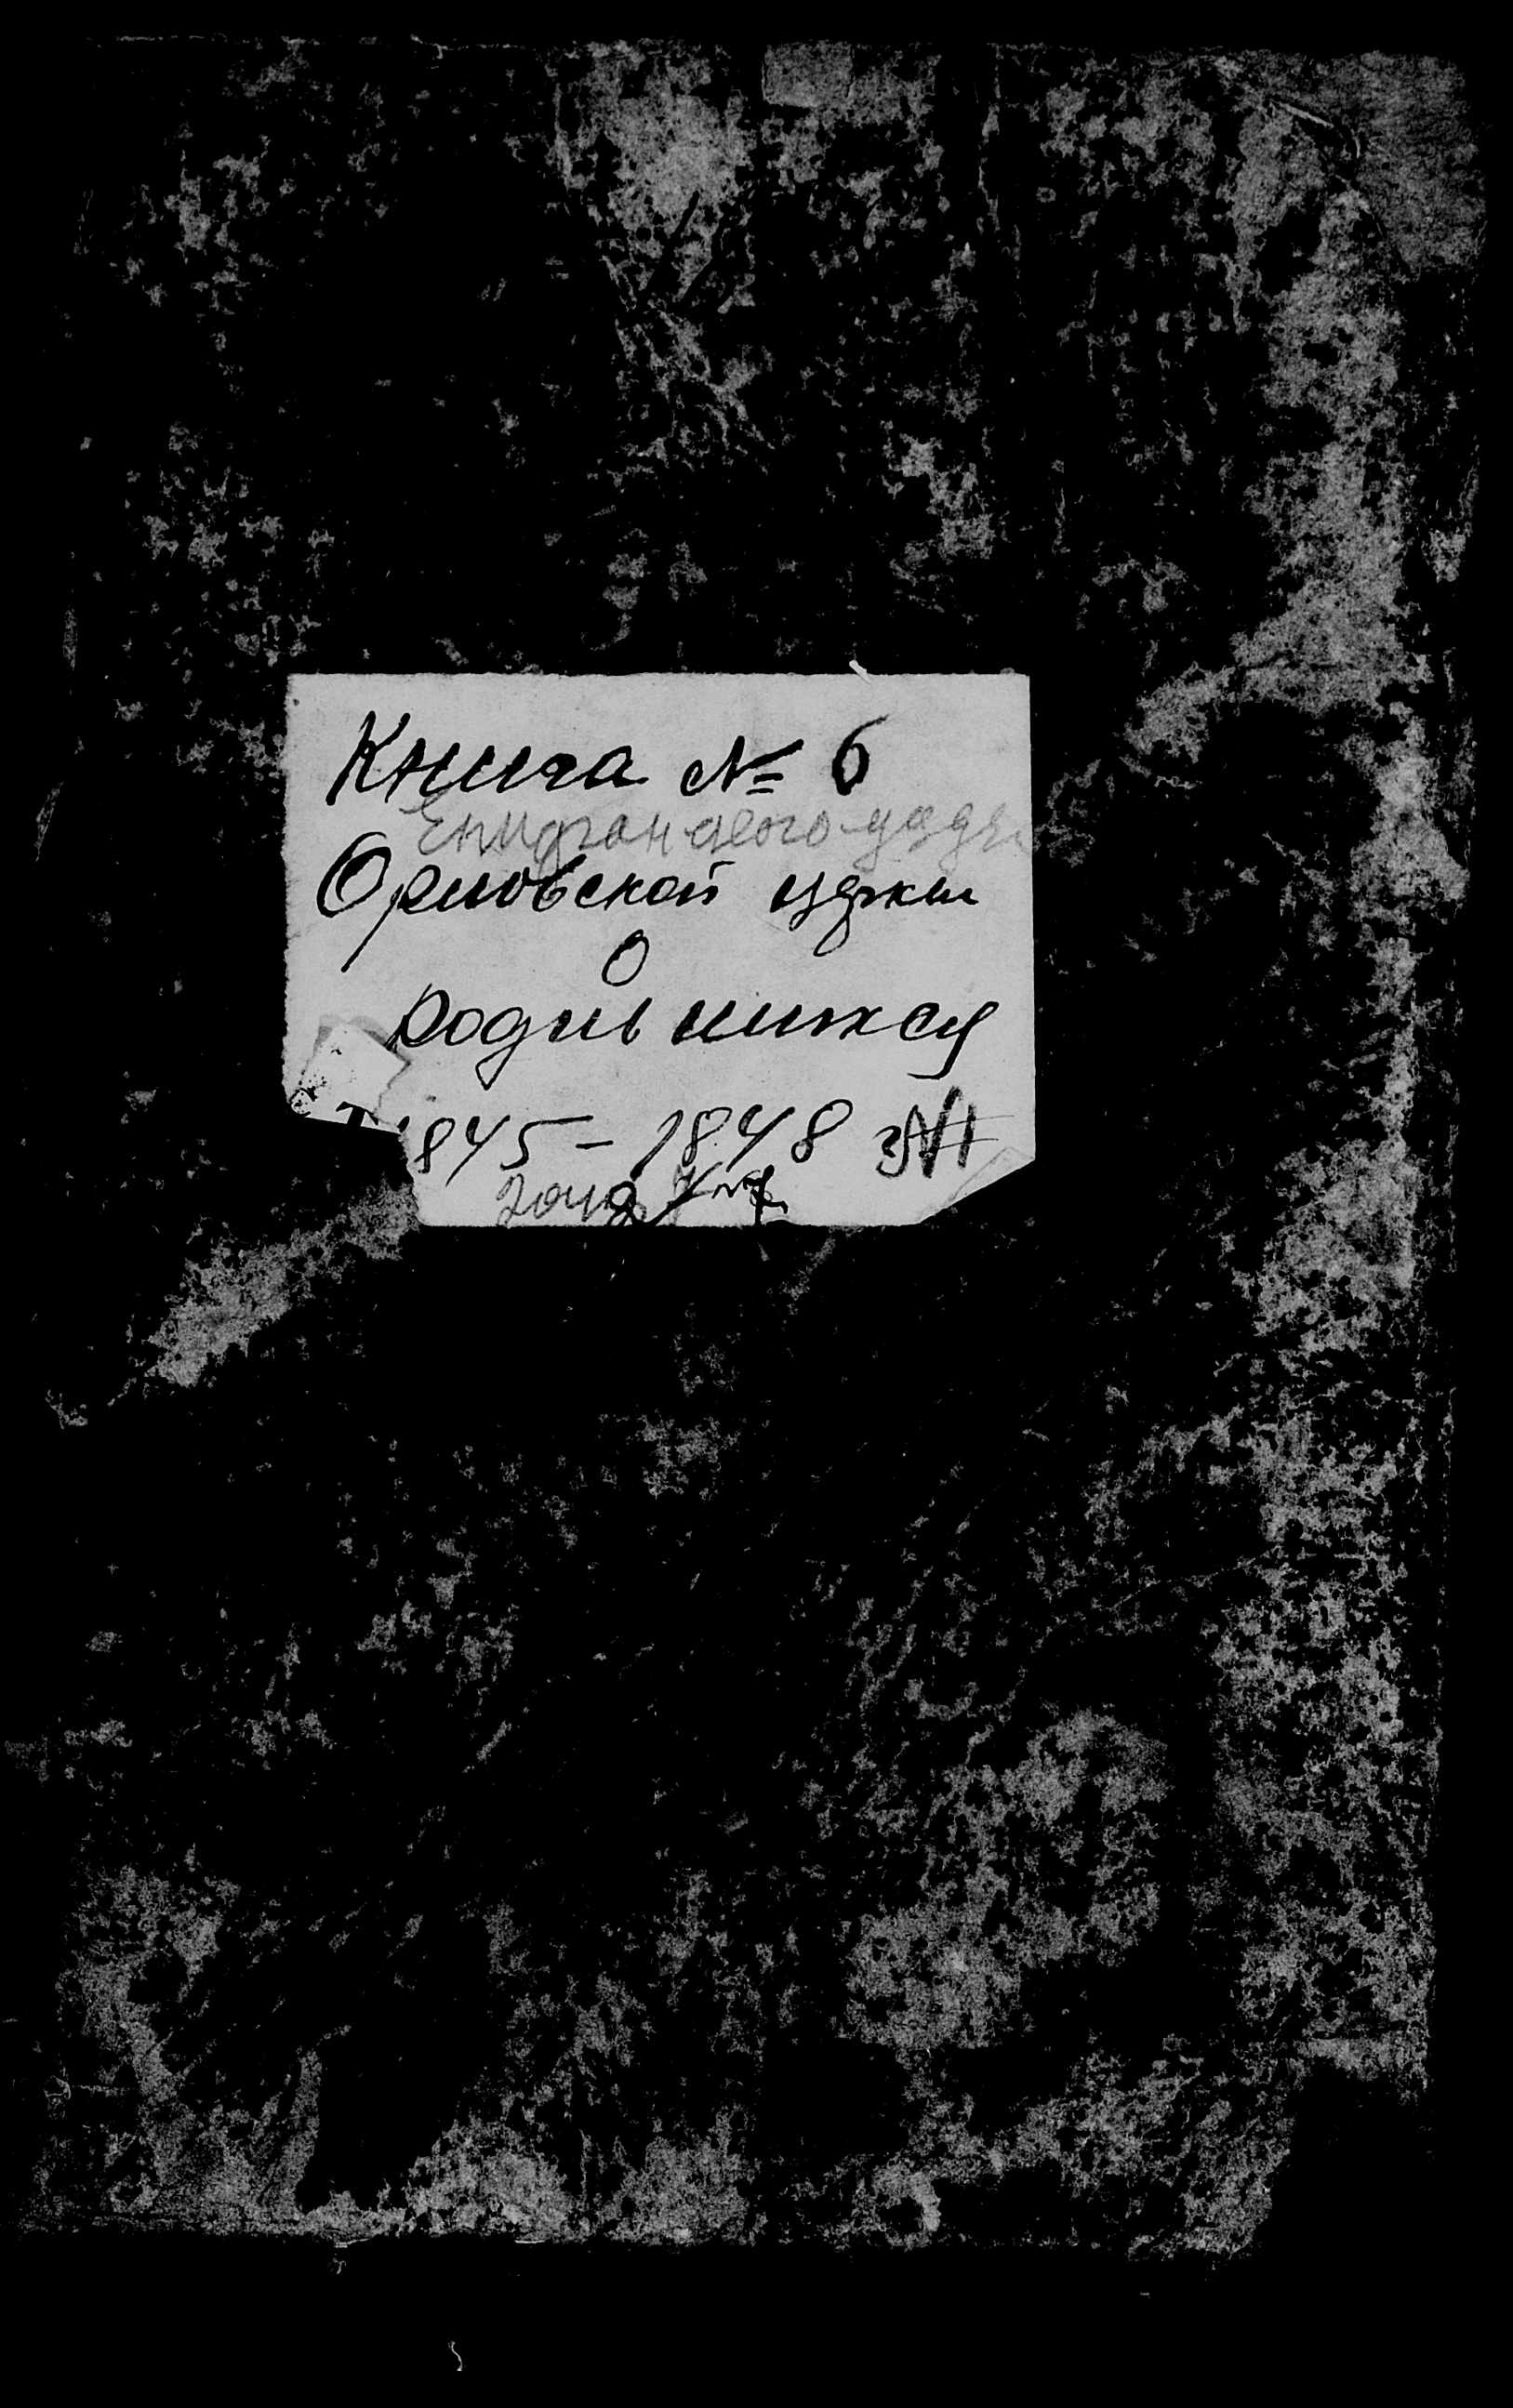 Книга № 6
Епифанского уезда
Орловской церкви
О
родившихся
1845 - 1848 г